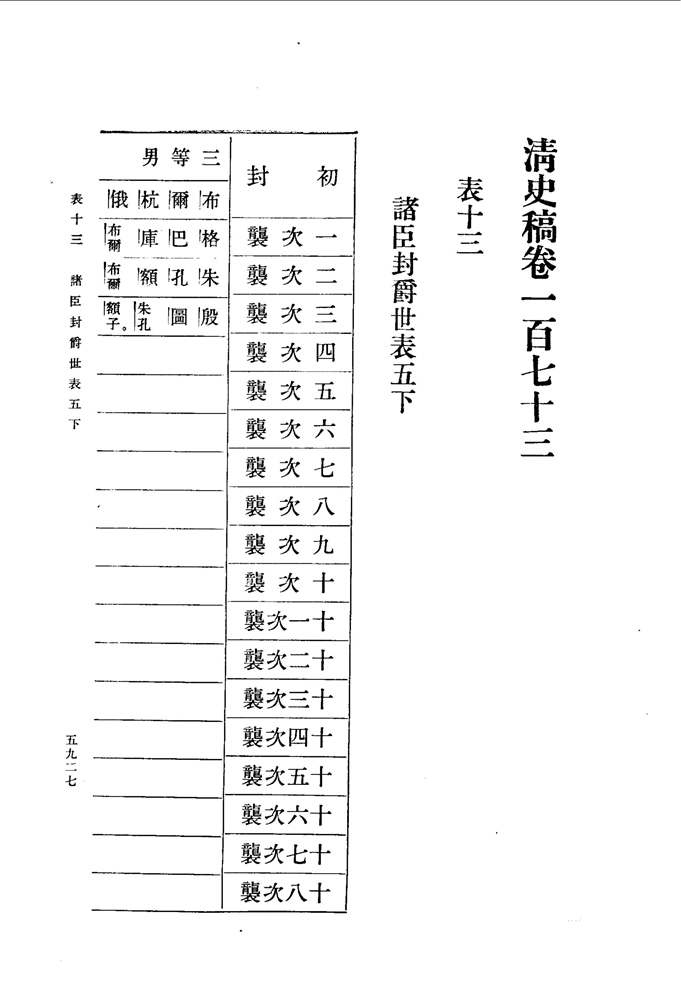 清史稿卷一百七十三
表十三
諸臣封爵世表五下
初封
一次襲
二次襲
三次襲
四次襲
五次襲
六次襲
七次襲
八次襲
九次襲
十次襲
十一次襲
十二次襲
十三次襲
十四次襲
十五次襲
十六次襲
十七次襲
十八次襲
三等男
布爾杭俄
格巴庫布爾
朱孔額布爾
殷圖朱孔額子。
表十三 諸臣封爵世表五下
五九二七